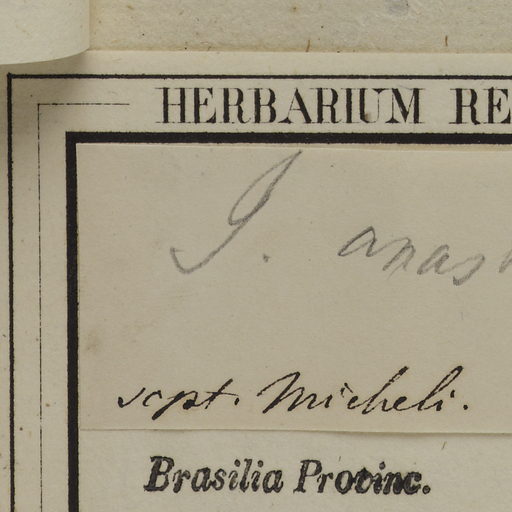 HERBARIUM RE
J. anas
scpt. Micheli.
Brasilia Provinc.